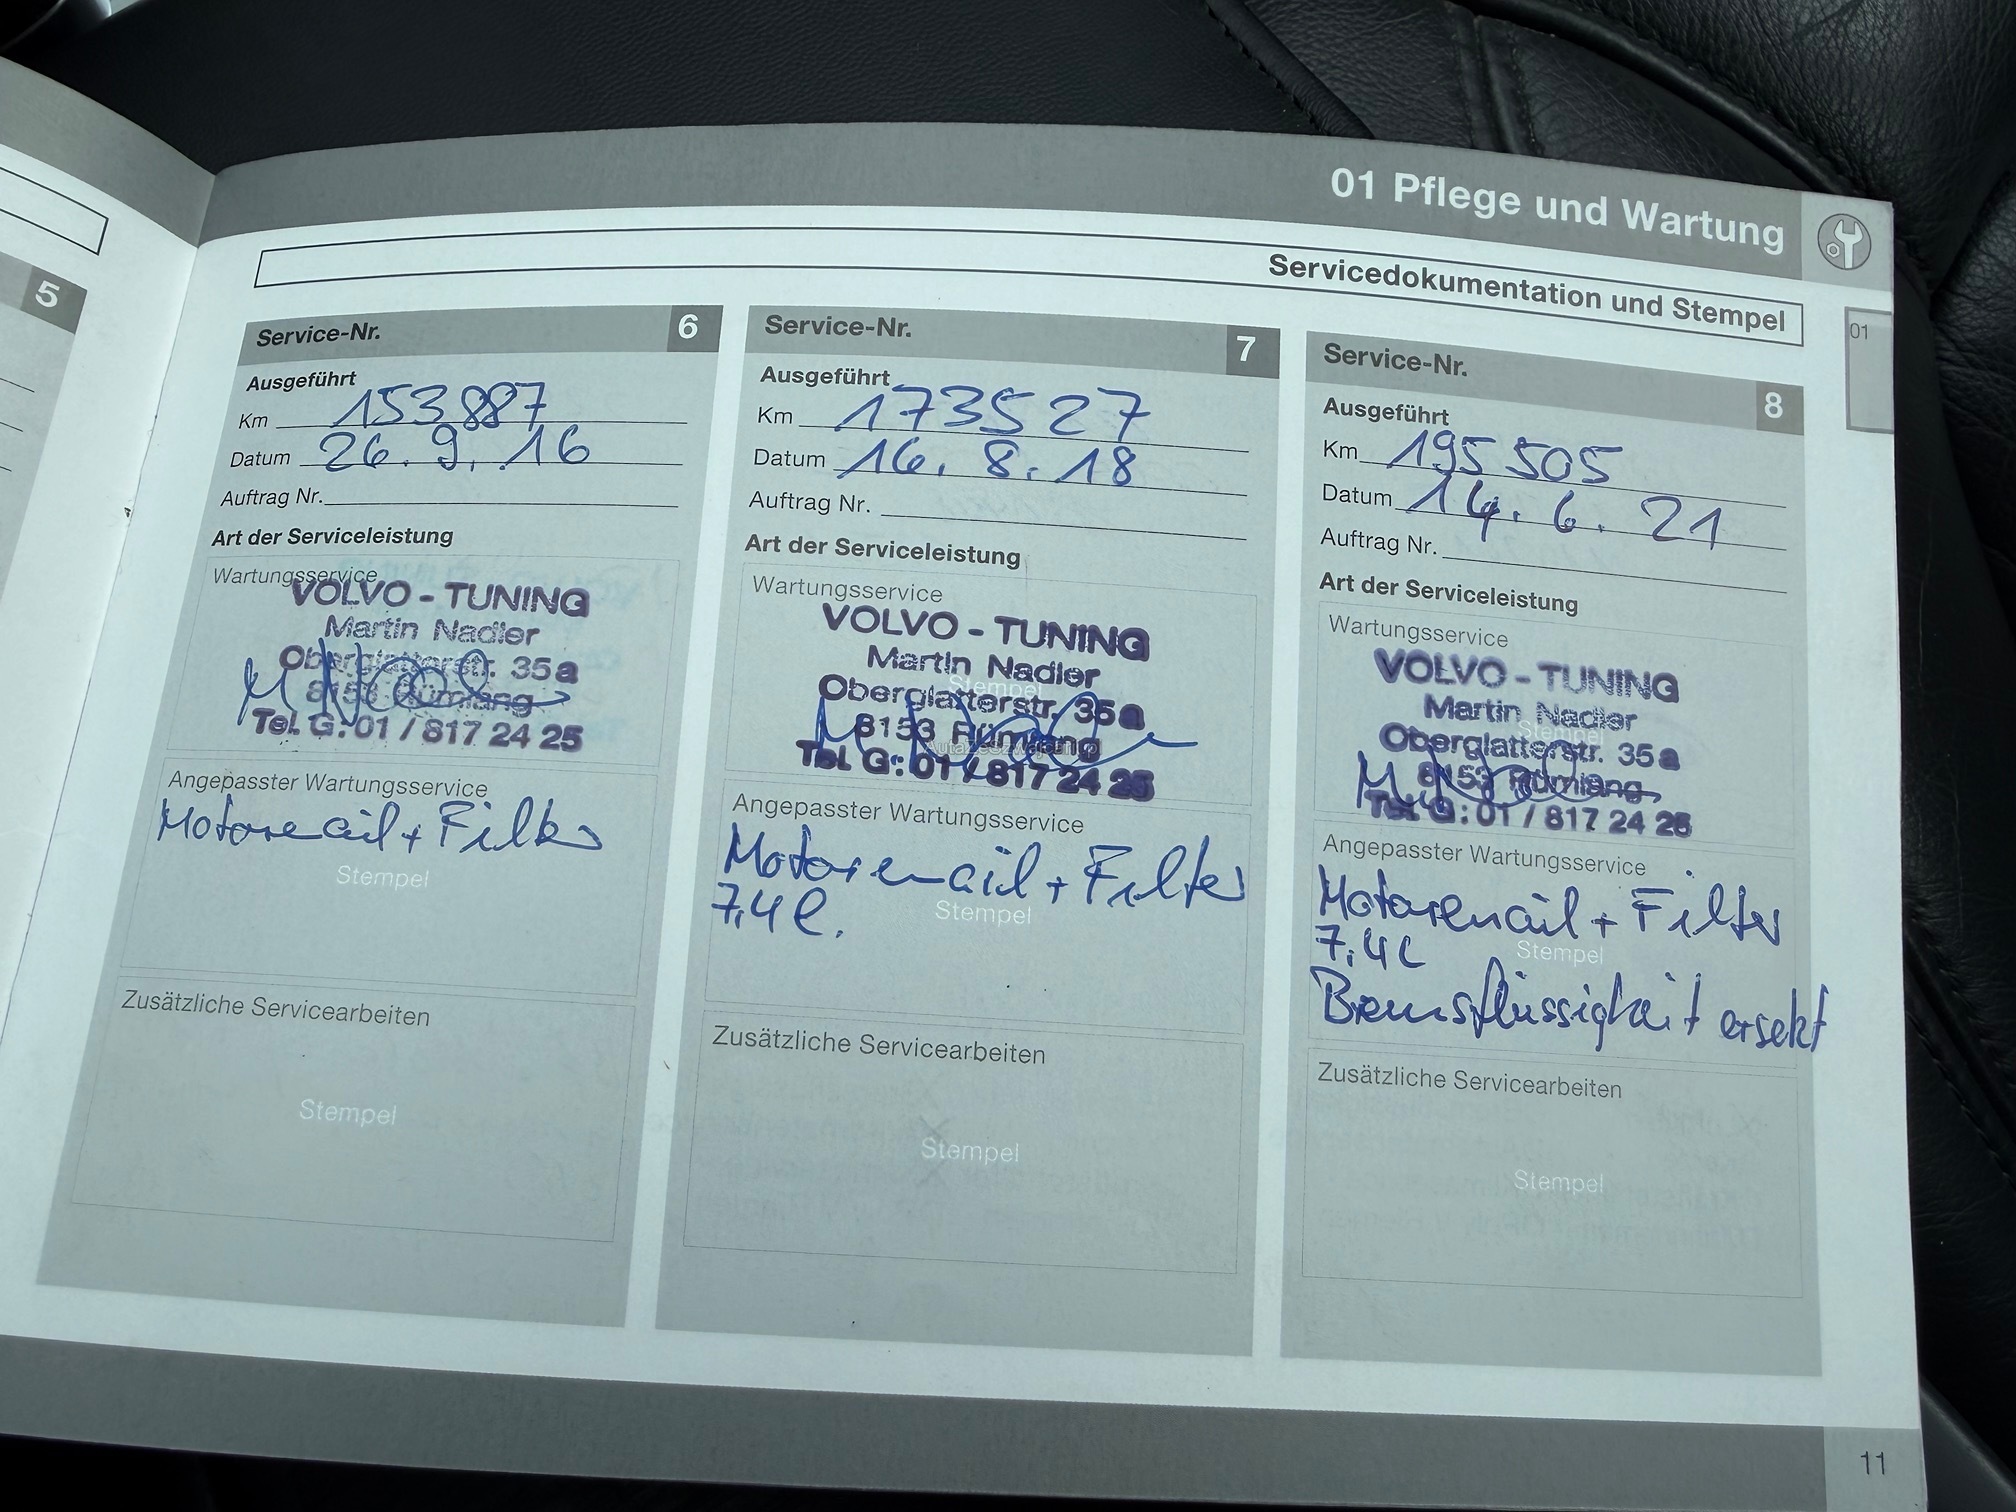 01 Pflege und Wartung
Servicedokumentation und Stempel
01
5
Service-Nr. 6
Ausgeführt
Km 153887
Datum 26.9.16
Auftrag Nr.
Art der Serviceleistung
Wartungsservice
VOLVO - TUNING
Martin Nadler
Oberglatterstr. 35a
8153 Rümlang
Tel. G: 01 / 817 24 25
Angepasster Wartungsservice
Motorenoil + Filter
Stempel
Zusätzliche Servicearbeiten
Stempel
Service-Nr. 7
Ausgeführt
Km 173527
Datum 16.8.18
Auftrag Nr.
Art der Serviceleistung
Wartungsservice
VOLVO - TUNING
Martin Nadler
Stempel
Oberglatterstr. 35a
8153 Rümlang
Tel. G: 01 / 817 24 25
Angepasster Wartungsservice
Motorenoil + Filter
7,4 l.
Stempel
Zusätzliche Servicearbeiten
Stempel
Service-Nr. 8
Ausgeführt
Km 195505
Datum 14.6.21
Auftrag Nr.
Art der Serviceleistung
Wartungsservice
VOLVO - TUNING
Martin Nadler
Stempel
Oberglatterstr. 35a
8153 Rümlang
Tel. G: 01 / 817 24 25
Angepasster Wartungsservice
Motorenoil + Filter
7,4 l
Stempel
Bremsflüssigkeit ersetzt
Zusätzliche Servicearbeiten
Stempel
11